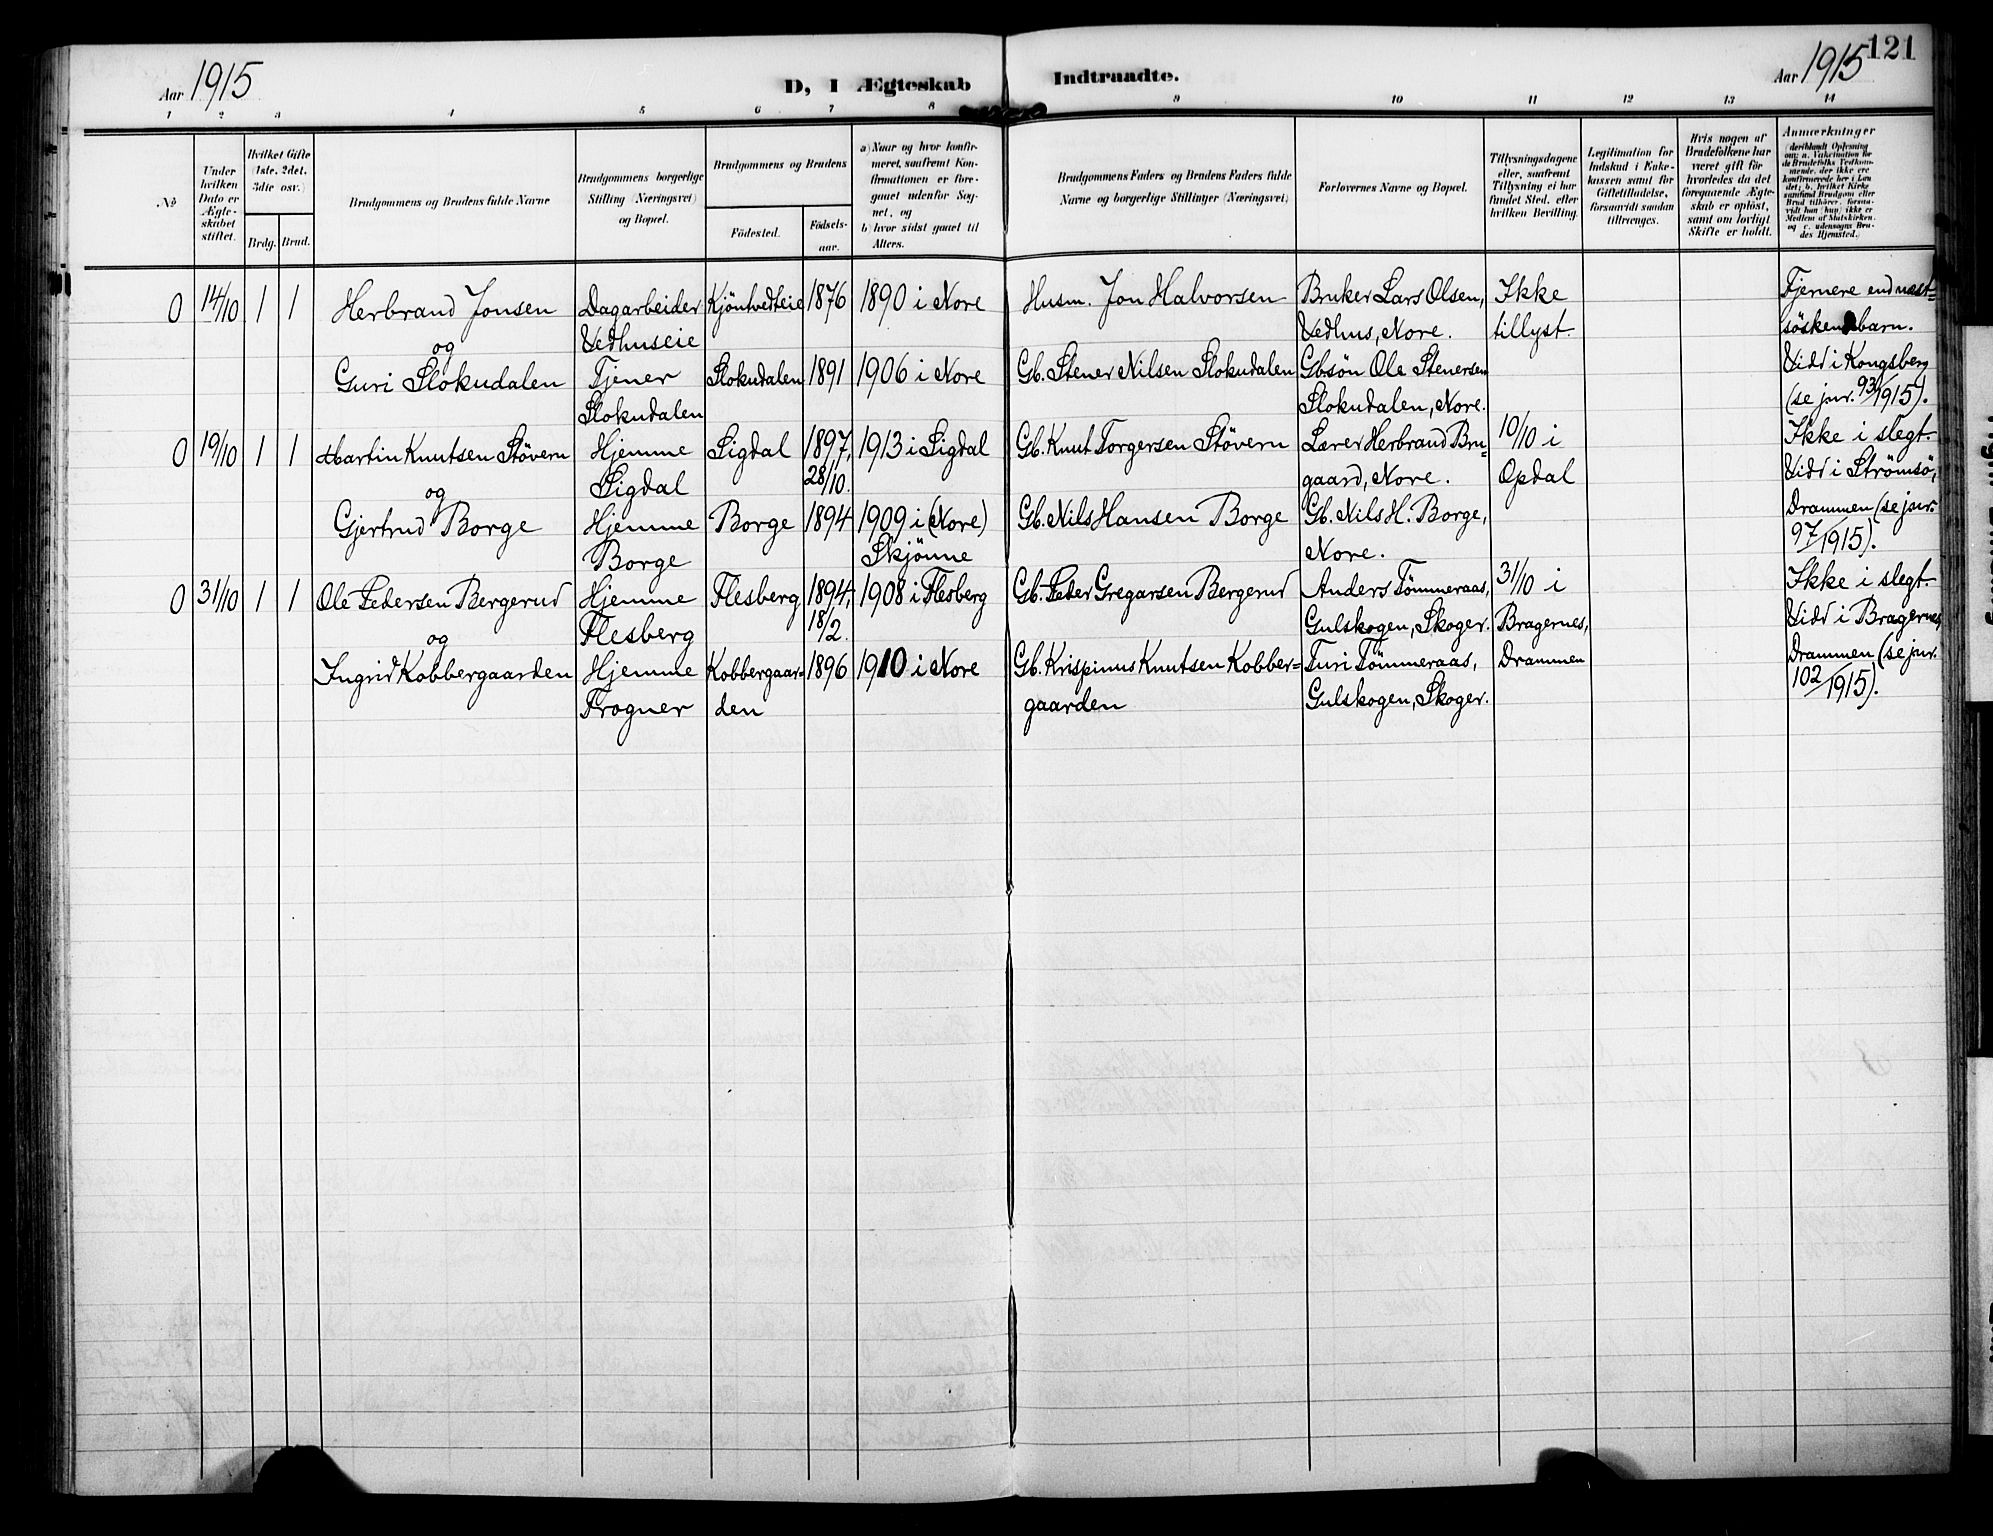 121
Aar 1915
D, I Ægteskab Indtraadte.
Aar 1915
1 2 3 4 5 6 7 8 9 10 11 12 13 14
No
Under hvilken Dato er Ægteskabet stiftet.
Hvilket Gifte (1ste, 2det, 3die osv.)
Brdg. Brud.
Brudgommens og Brudens fulde Navne
Brudgommens borgerlige Stilling (Næringsvei) og Bopæl.
Brudgommens og Brudens
Fødested. Fødselsaar.
a) Naar og hvor konfirmeret, saafremt Konfirmationen er foregaaet udenfor Sognet, og
b) hvor sidst gaaet til Alters.
Brudgommens Faders og Brudens Faders fulde Navne og borgerlige Stillinger (Næringsvei)
Forlovernes Navne og Bopæl.
Tillysningsdagene eller, saafremt Tillysning ei har fundet Sted, efter hvilken Bevilling.
Legitimation for Indskud i Enkekassen samt for Giftetilladelse, forsaavidt saadan tiltrænges.
Hvis nogen af Brudefolkene har været gift før hvorledes da det foregaaende Ægteskab er opløst, samt om lovligt Skifte er holdt.
Anmærkninger
(deriblandt Oplysning om: a. Vakcination for de Brudefolks Vedkommende, der ikke ere konfirmerede her i Landet; b. hvilket Kirkesamfund Brudgom eller Brud tilhører, forsaavidt han (hun) ikke er Medlem af Statskirken, og c. udensogns Brudes Hjemsted.)
0 14/10 1 1 Herbrand Jonsen Dagarbeider Kjöntvedteie 1876 1890 i Nore Husm. Jon Halvorsen Bruker Lars Olsen, Ikke Fjernere end næst-
og Vedhuseie Vedhus, Nore. tillyst söskenbarn.
Guri Slokudalen Tjener Slokudalen 1891 1906 i Nore Gb. Stener Nilsen Slokudalen Gbsön Ole Stenersen Vidd i Kongsberg
Slokudalen Slokudalen, Nore. (se jnr. 93/1915).
0 19/10 1 1 Martin Knutsen Stövern Hjemme Sigdal 1897, 1913 i Sigdal Gb. Knut Torgersen Stövern Lærer Herbrand Bru- 10/10 i Ikke i slegt
og Sigdal 28/10. gaard, Nore. Opdal Vidd i Strömsö,
Gjertrud Borge Hjemme Borge 1894 1909 i (Nore) Gb. Nils Hansen Borge Gb. Nils H. Borge, Drammen (se jnr.
Borge Skjönne Nore. 97/1915).
0 31/10 1 1 Ole Pedersen Bergerud Hjemme Flesberg 1894, 1908 i Flesberg Gb. Peder Gregarsen Bergerud Anders Tömmeraas, 31/10 i Ikke i slegt
og Flesberg 18/2. Gulskogen, Skoger. Bragernes, Vidd i Bragernes,
Ingrid Kobbergaarden Hjemme Kobbergaar- 1896 1910 i Nore Gb. Krispinus Knutsen Kobber- Turi Tömmeraas, Drammen Drammen (se jnr.
Frogner den gaarden Gulskogen, Skoger. 102/1915).